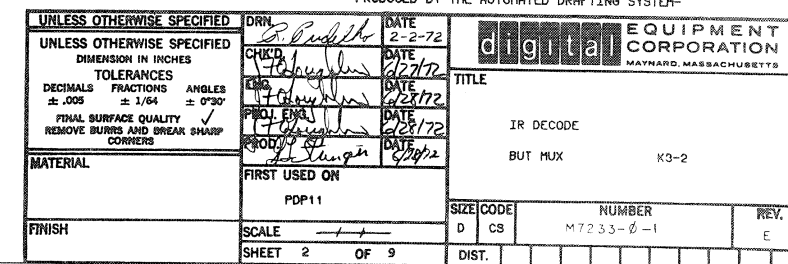 PRODUCED BY THE AUTOMATED DRAFTING SYSTEM-
UNLESS OTHERWISE SPECIFIED
UNLESS OTHERWISE SPECIFIED
DIMENSION IN INCHES
TOLERANCES
DECIMALS FRACTIONS ANGLES
± .005 ± 1/64 ± 0°30'
FINAL SURFACE QUALITY √
REMOVE BURRS AND BREAK SHARP
CORNERS
MATERIAL
FINISH
DRN. DATE
2-2-72
CHK'D DATE
6/27/72
ENG. DATE
6/28/72
PROJ. ENG. DATE
6/28/72
PROD. DATE
FIRST USED ON
PDP11
SCALE
SHEET 2 OF 9
digital EQUIPMENT
CORPORATION
MAYNARD, MASSACHUSETTS
TITLE
IR DECODE
BUT MUX K3-2
SIZE CODE NUMBER REV.
D CS M7233-Ø-1 E
DIST.